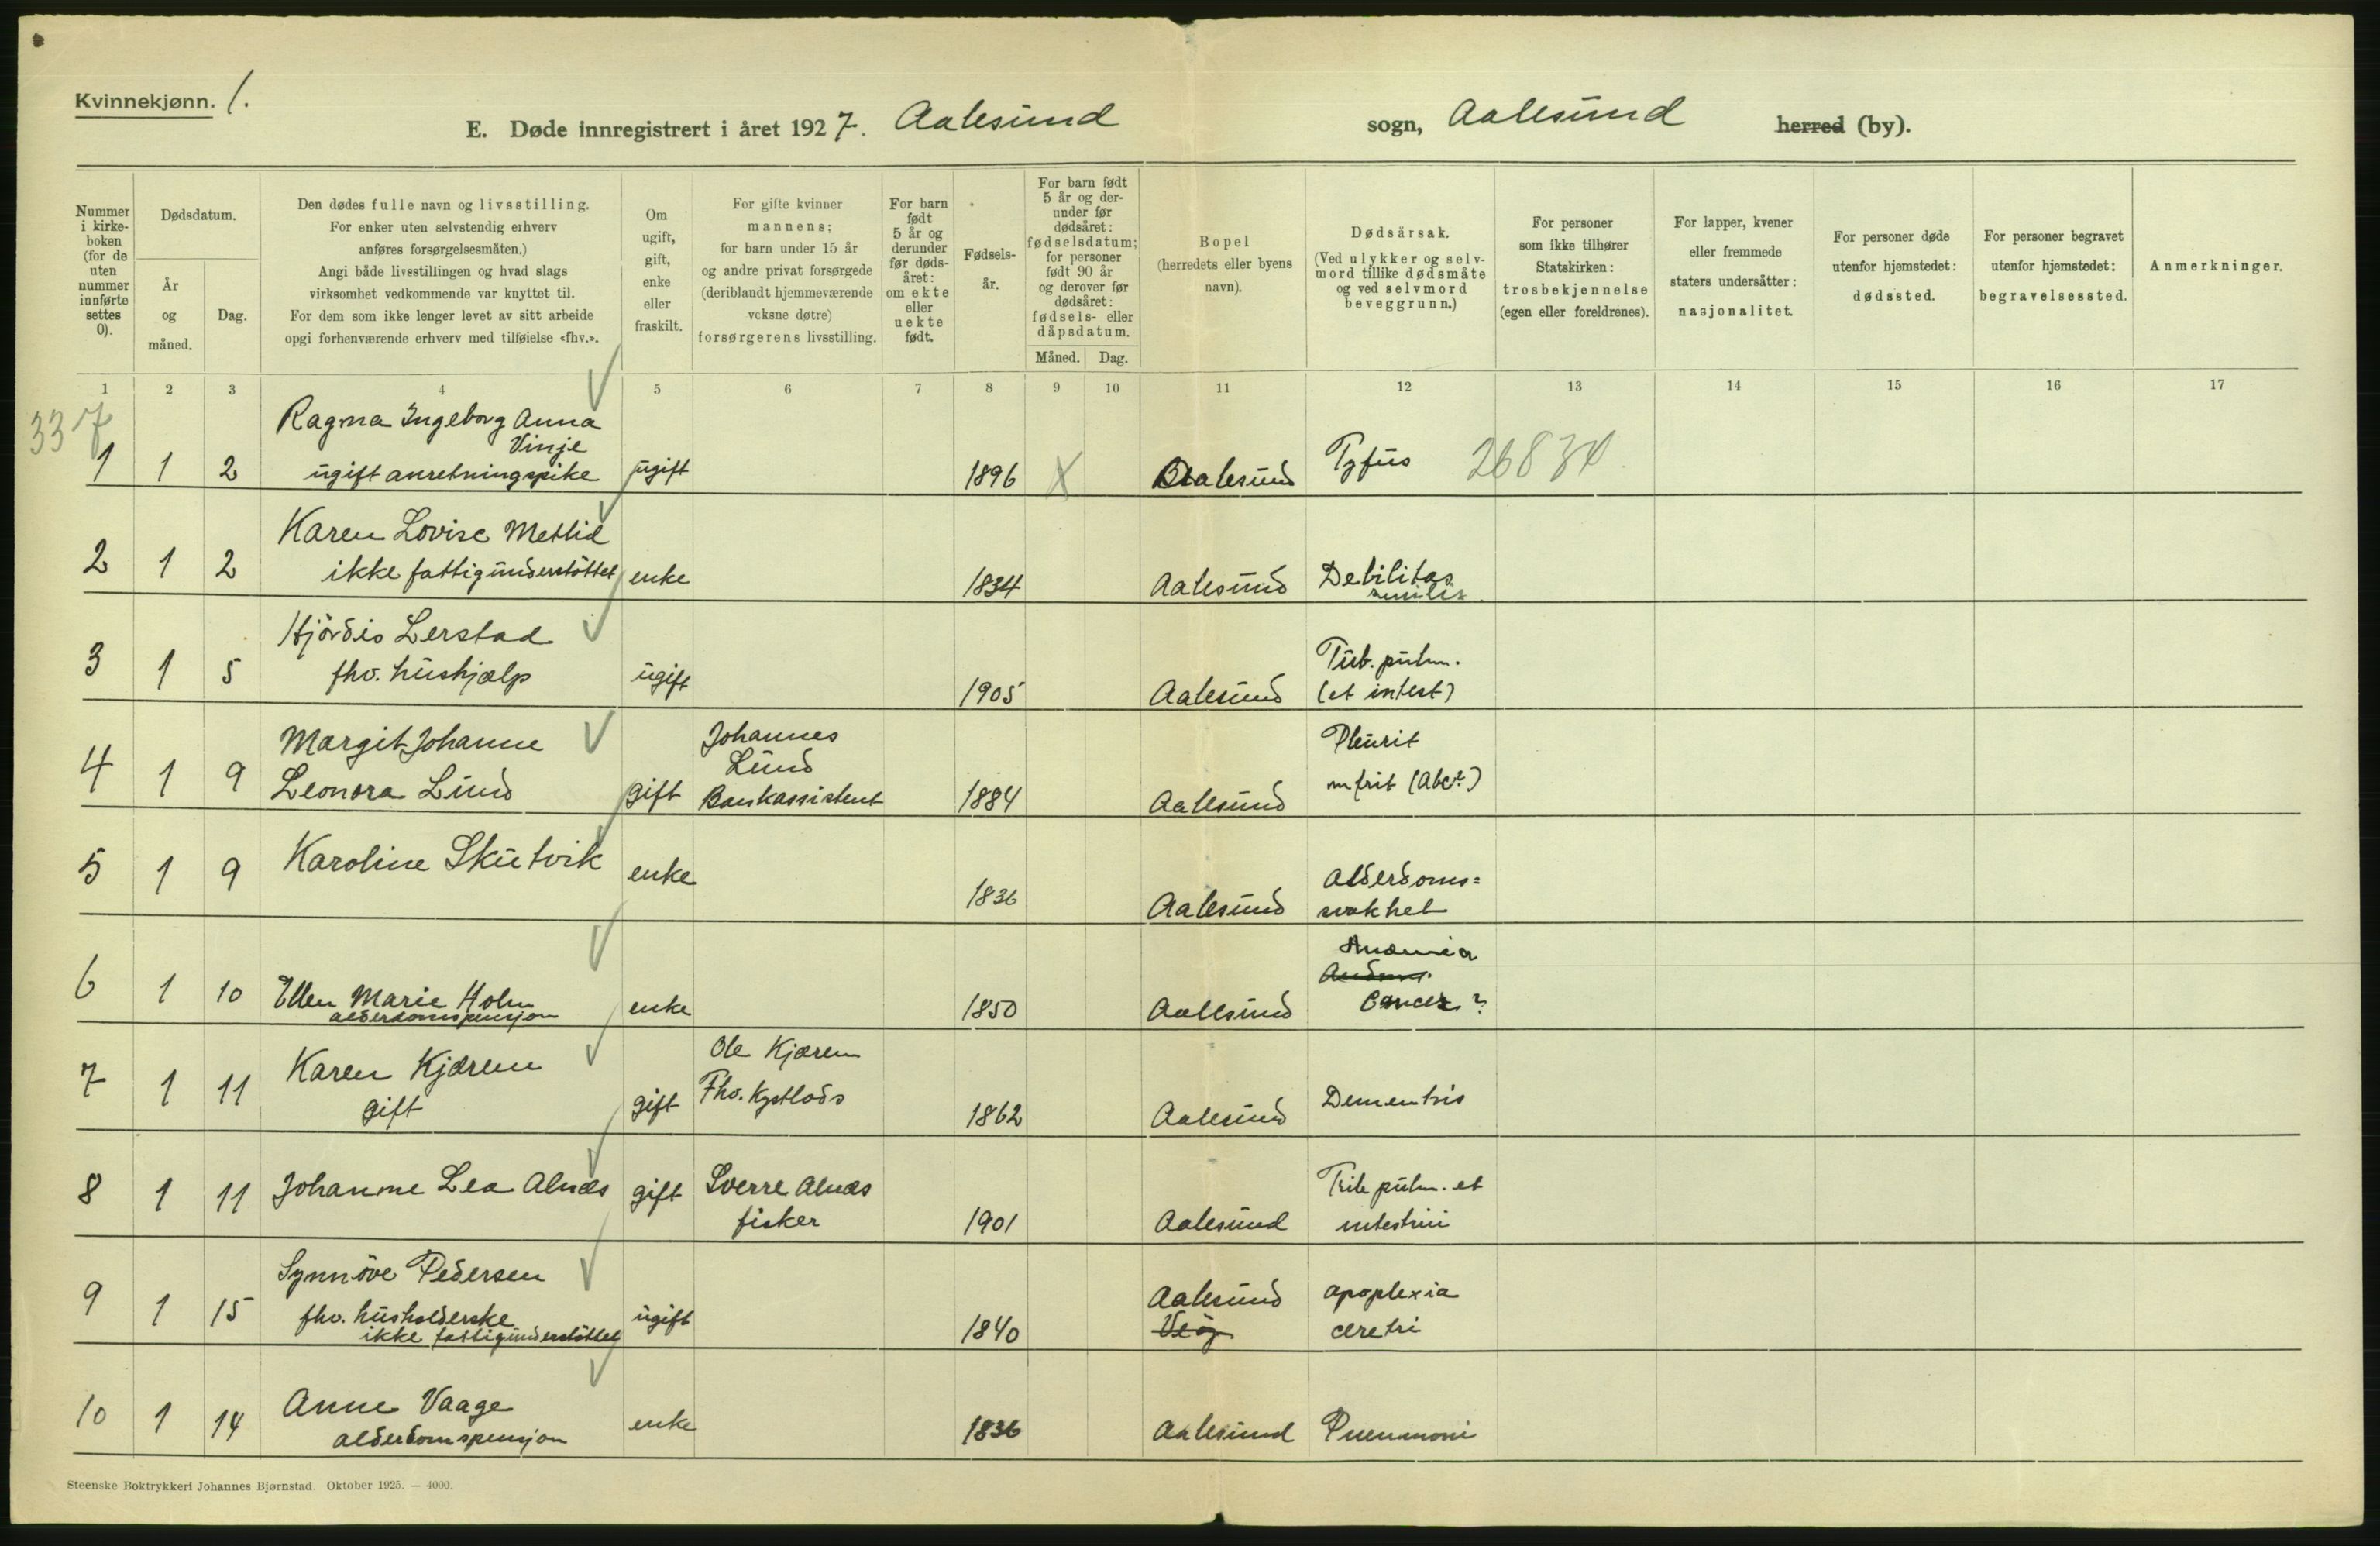 Kvinnekjønn. 1.
E. Døde innregistrert i året 1927. Aalesund sogn, Aalesund herred (by).
Nummer i kirke-boken (for de uten nummer innførte settes 0).
Dødsdatum.
År og måned.
Dag.
Den dødes fulle navn og livsstilling.
For enker uten selvstendig erhverv
anføres forsørgelsesmåten.)
Angi både livsstillingen og hvad slags
virksomhet vedkommende var knyttet til.
For dem som ikke lenger levet av sitt arbeide
opgi forhenværende erhverv med tilføielse «fhv.».
Om
ugift,
gift,
enke
eller
fraskilt.
For gifte kvinner
mannens;
for barn under 15 år
og andre privat forsørgede
(deriblandt hjemmeværende
voksne døtre)
forsørgerens livsstilling.
For barn
født
5 år og
derunder
før døds-
året:
om ekte
eller
uekte
født.
Fødsels-
år.
For barn født
5 år og der-
under før
dødsåret:
fødselsdatum;
for personer
født 90 år
og derover før
dødsåret:
fødsels- eller
dåpsdatum.
Måned. Dag.
Bopel
(herredets eller byens
navn).
Dødsårsak.
(Ved ulykker og selv-
mord tillike dødsmåte
og ved selvmord
beveggrunn.)
For personer
som ikke tilhører
Statskirken:
trosbekjennelse
(egen eller foreldrenes).
For lapper, kvener
eller fremmede
staters undersåtter:
nasjonalitet.
For personer døde
utenfor hjemstedet:
dødssted.
For personer begravet
utenfor hjemstedet:
begravelsessted.
Anmerkninger.
1 2 3 4 5 6 7 8 9 10 11 12 13 14 15 16 17
337
Ragna Ingeborg Anna
Vinje
1 1 2 ugift anretningspike ugift 1896 X Aalesund Tyfus 26834
Karen Lovise Metlid
2 1 2 ikke fattigunderstöttet enke 1834 Aalesund Debilitas
senilis
Hjördis Lerstad
3 1 5 fhv. hushjælp ugift 1905 Aalesund Tub. pulm.
(et intest)
Margit Johanne
4 1 9 Leonora Lund gift Johannes
Lund
Bankassistent 1884 Aalesund Pleurit
5 1 9 Karoline Skutvik enke 1836 Aalesund Alderdoms=
svakhet
6 1 10 Ellen Marie Holm
alderdomspensjon enke 1850 Aalesund Anæmia
Cancer?
7 1 11 Karen Kjærem
gift gift Ole Kjærem
Fhv. Kystlods 1862 Aalesund
8 1 11 Johanne Lea Alnæs gift Sverre Alnæs
fisker 1901 Aalesund pulm. et
Synnöve Pedersen
9 1 15 fhv. husholderske
ikke fattigunderstöttet ugift 1840 Aalesund
Veöy apoplexia
10 1 14 Anne Vaage
alderdomspensjon enke 1836 Aalesund Pneumoni
Steenske Boktrykkeri Johannes Bjørnstad. Oktober 1925. — 4000.